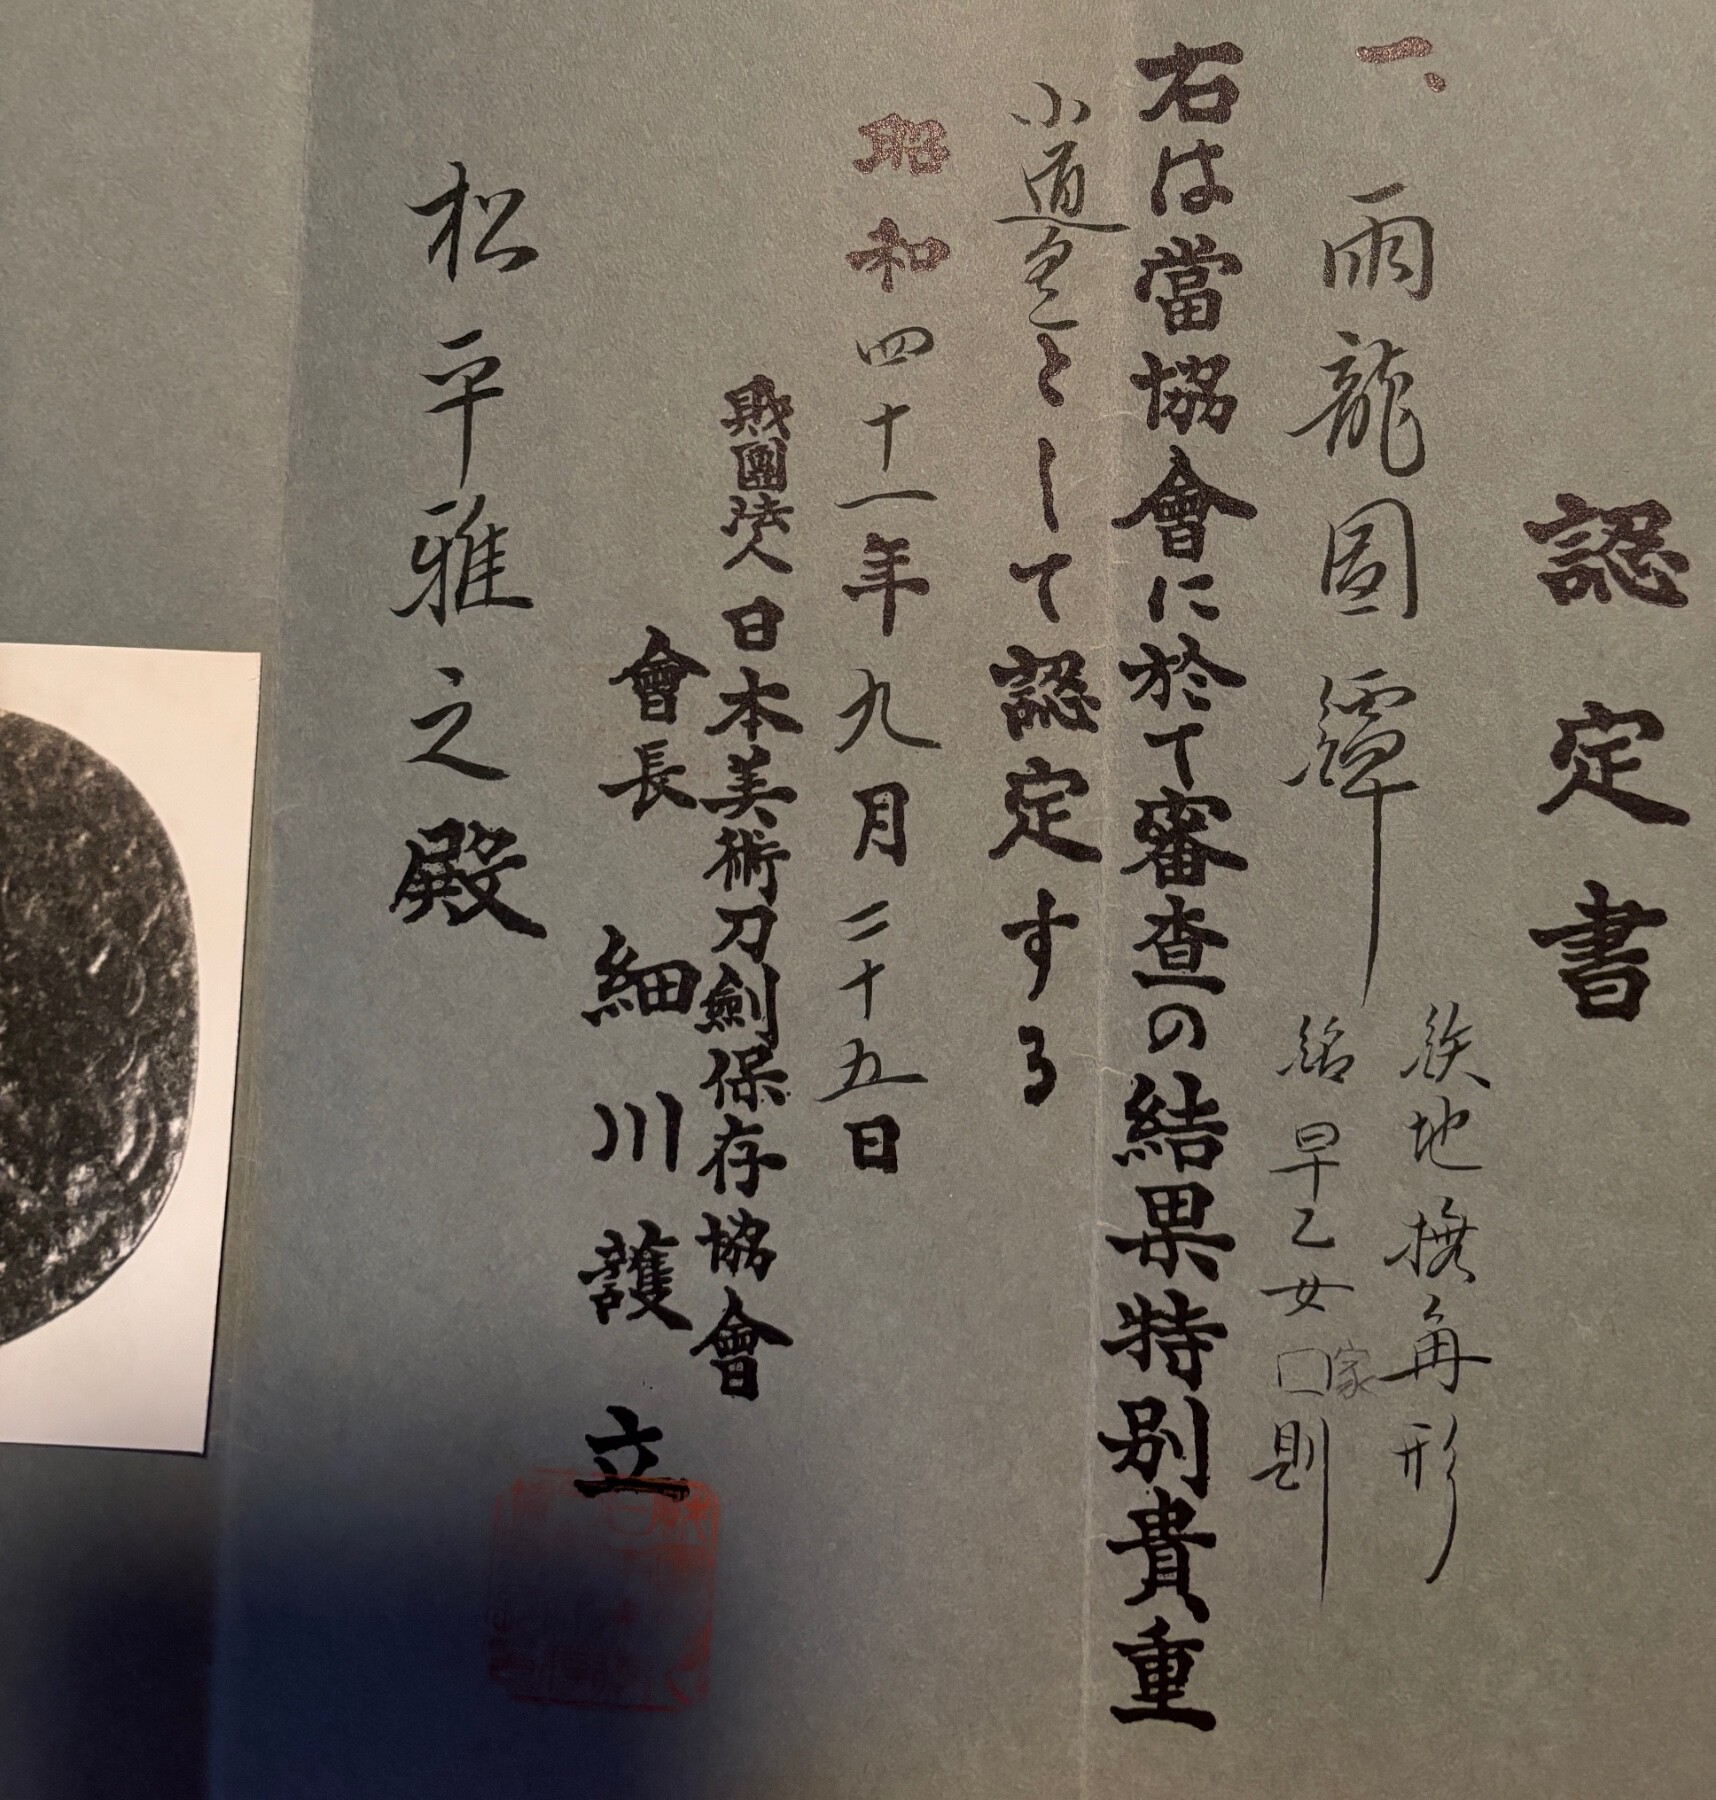 認定書
一、雨龍圖鐔
鉄地撫角形
銘 早乙女□家則
右は當協會に於て審査の結果特別貴重
小道具として認定する
昭和四十一年九月二十五日
財團法人日本美術刀劍保存協會
會長 細川護立
松平雅之殿